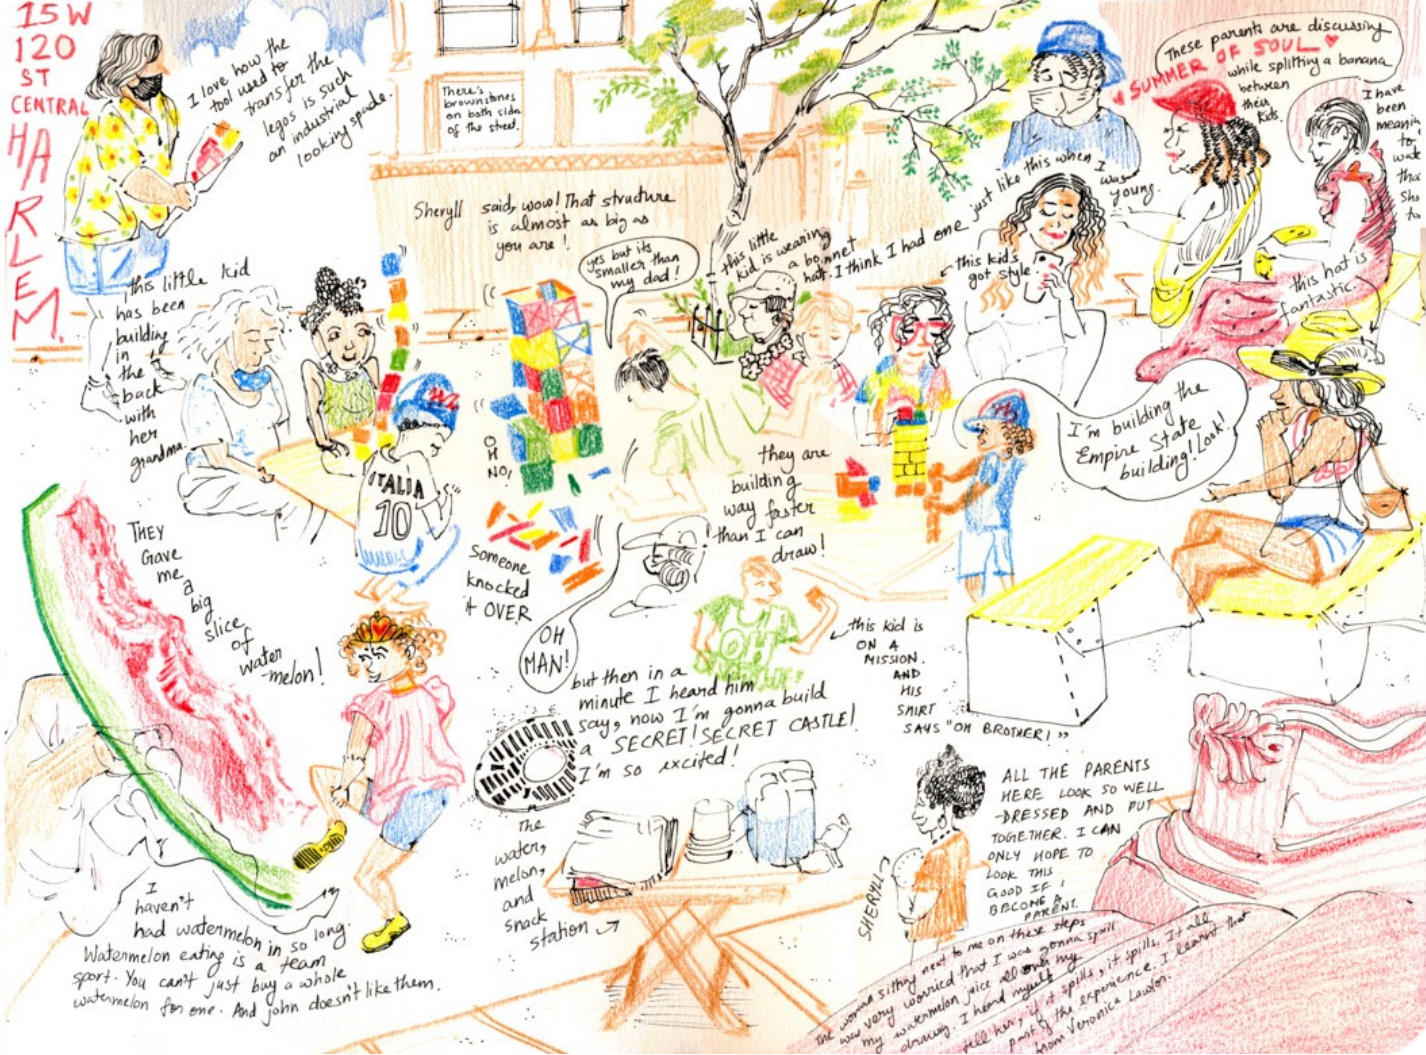 15 W
120
ST
CENTRAL
HARLEM.
I love how the
tool used to
transfer the
legos is such
an industrial
looking spade.
There's
brownstones
on both sides
of the street.
Sheryll said, wow! That structure
is almost as big as
you are!
yes but its
smaller than
my dad!
this little
kid is wearing
a bonnet
hat. I think I had one just like this when I
was
young.
this kid's
got style
These parents are discussing
SUMMER OF SOUL
while splitting a banana
between
their
kids.
I have
been
meanin
to
wat
this hat is
fantastic.
this little kid
has been
building
in
the
back
with
her
grandma.
ITALIA
10
OH
NO!
Someone
knocked
it OVER
OH
MAN!
they are
building
way faster
than I can
draw!
I'm building the
Empire State
building! Look!
THEY
Gave
me
a
big
slice
of
water
-melon!
but then in a
minute I heard him
say, now I'm gonna build
a SECRET! SECRET CASTLE!
I'm so excited!
OH
this kid is
ON A
MISSION.
AND
HIS
SHIRT
SAYS "OH BROTHER!"
The
water,
melon,
and
snack
station
SHERYLL
ALL THE PARENTS
HERE LOOK SO WELL
-DRESSED AND PUT
TOGETHER. I CAN
ONLY HOPE TO
LOOK THIS
GOOD IF I
BECOME A
PARENT.
I
haven't
had watermelon in so long.
Watermelon eating is a team
sport. You can't just buy a whole
watermelon for one. And john doesn't like them.
The woman sitting next to me on these steps
was very worried that I was gonna spill
my watermelon juice all over my
drawing. I heard myself
tell her, if it spills, it spills, It all
part of the experience. I learnt that
from Veronica Lawlor.